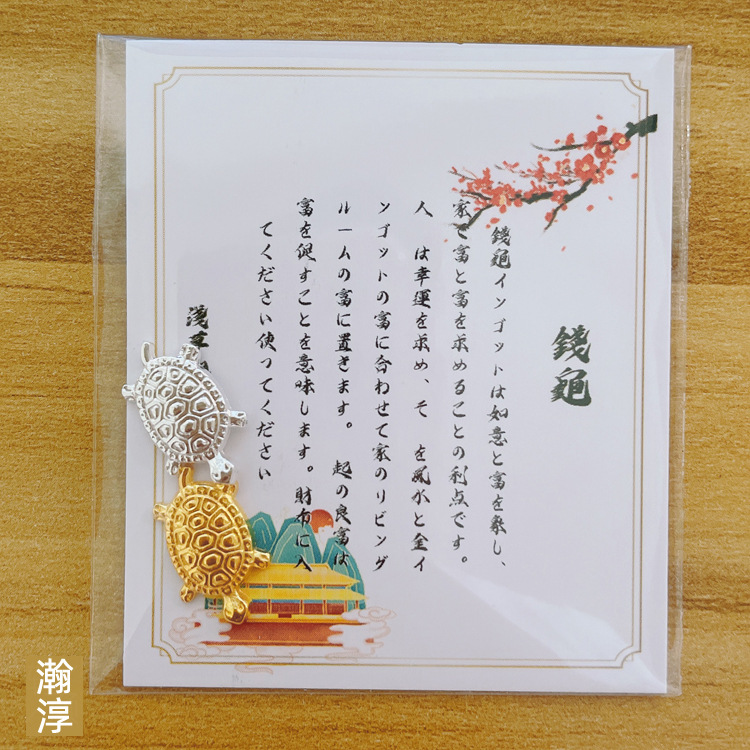 錢龜
錢龜インゴットは如意と富を象し、
家で富と富を求めることの利点です。
人 は幸運を求め、そ を風水と金イ
ンゴットの富に合わせて家のリビング
ルームの富に置きます。 起の良富は
富を促すことを意味します。財布に入
てください使ってください
淺草
瀚淳